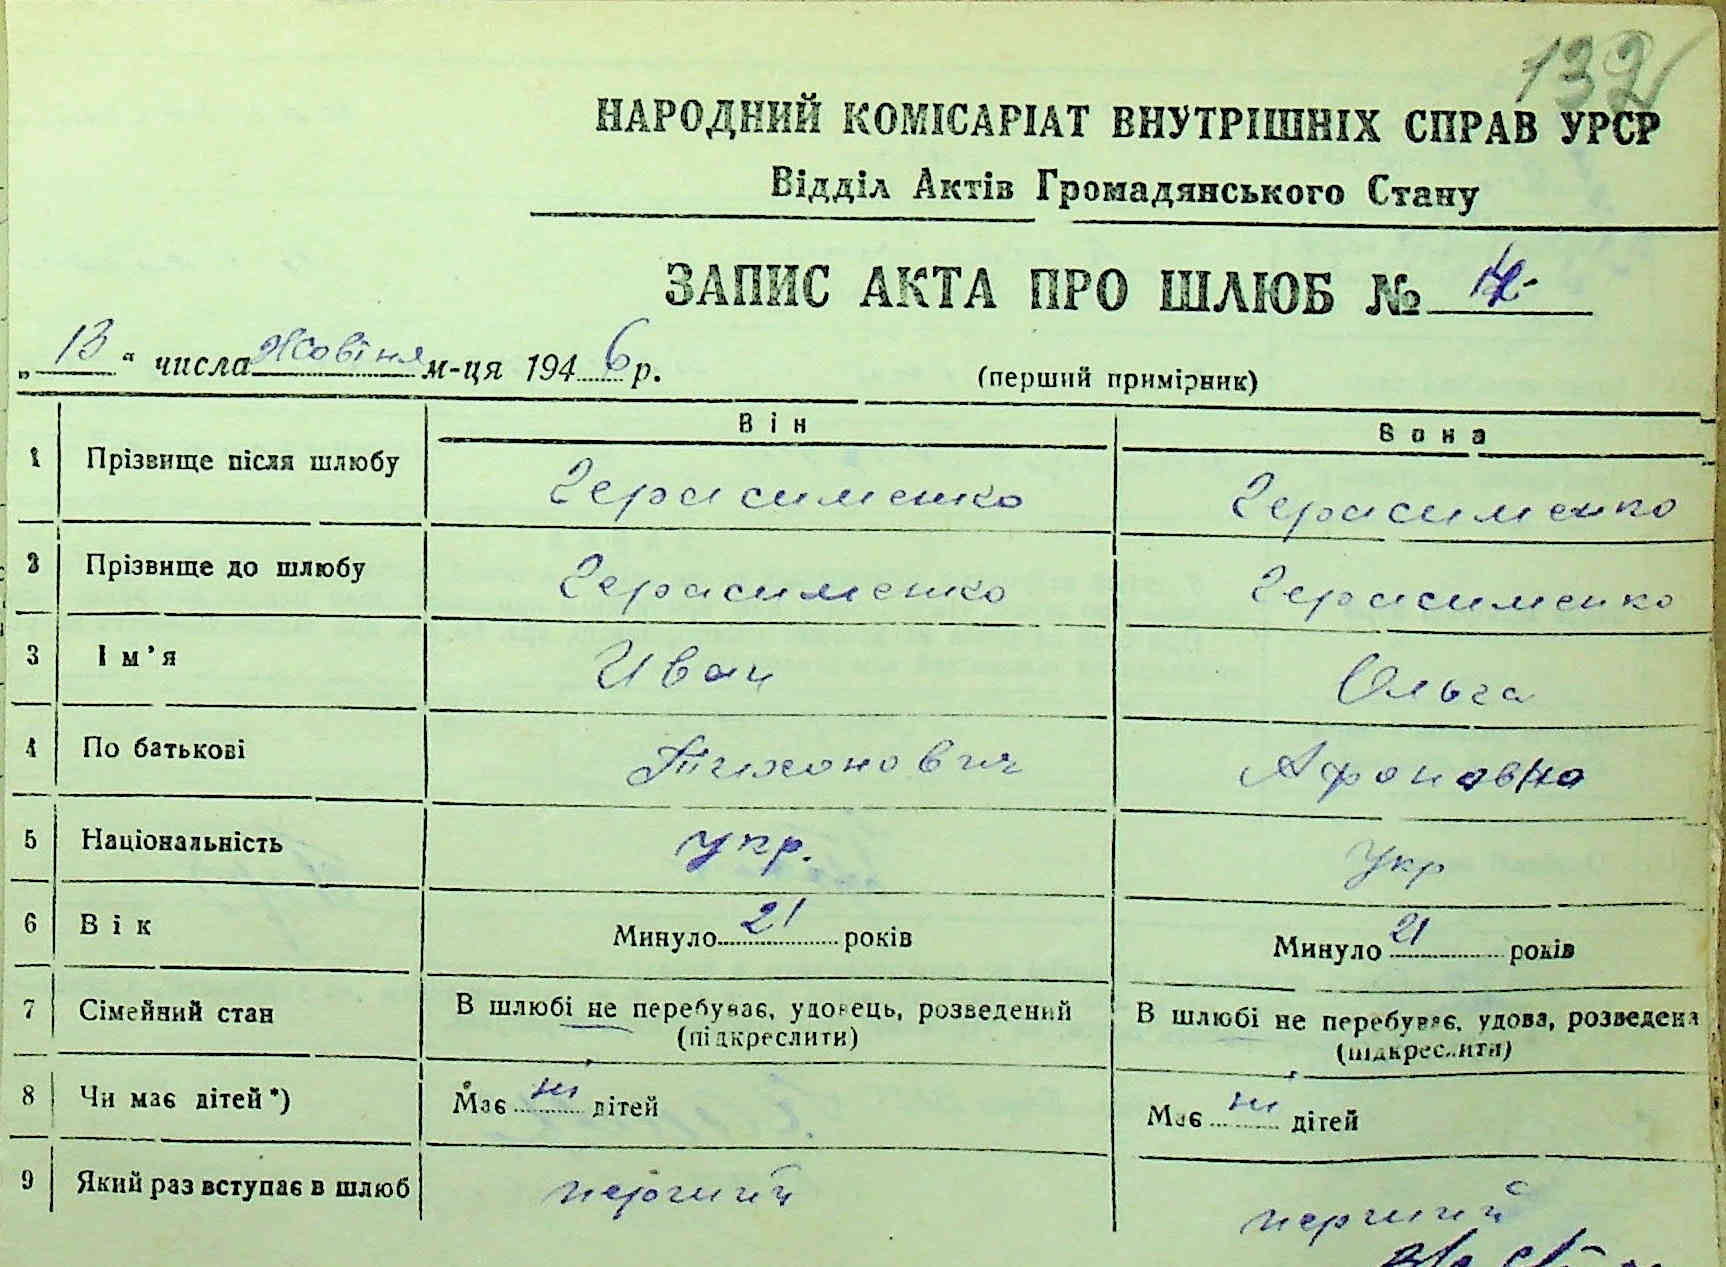 132
НАРОДНИЙ КОМІСАРІАТ ВНУТРІШНІХ СПРАВ УРСР
Відділ Актів Громадянського Стану
ЗАПИС АКТА ПРО ШЛЮБ №
„13“ числа Жовтня м-ця 1946 р. (перший примірник)
Він Вона
1 Прізвище після шлюбу Герасименко Герасименко
2 Прізвище до шлюбу Герасименко Герасименко
3 Ім'я Иван Ольга
4 По батькові Тихонович Афоновна
5 Національність укр. Укр
6 Вік Минуло 21 років Минуло 21 років
7 Сімейний стан В шлюбі не перебуває, удовець, розведений В шлюбі не перебуває, удова, розведена
(підкреслити) (підкреслити)
8 Чи має дітей*) Має ні дітей Має ні дітей
9 Який раз вступає в шлюб перший перший